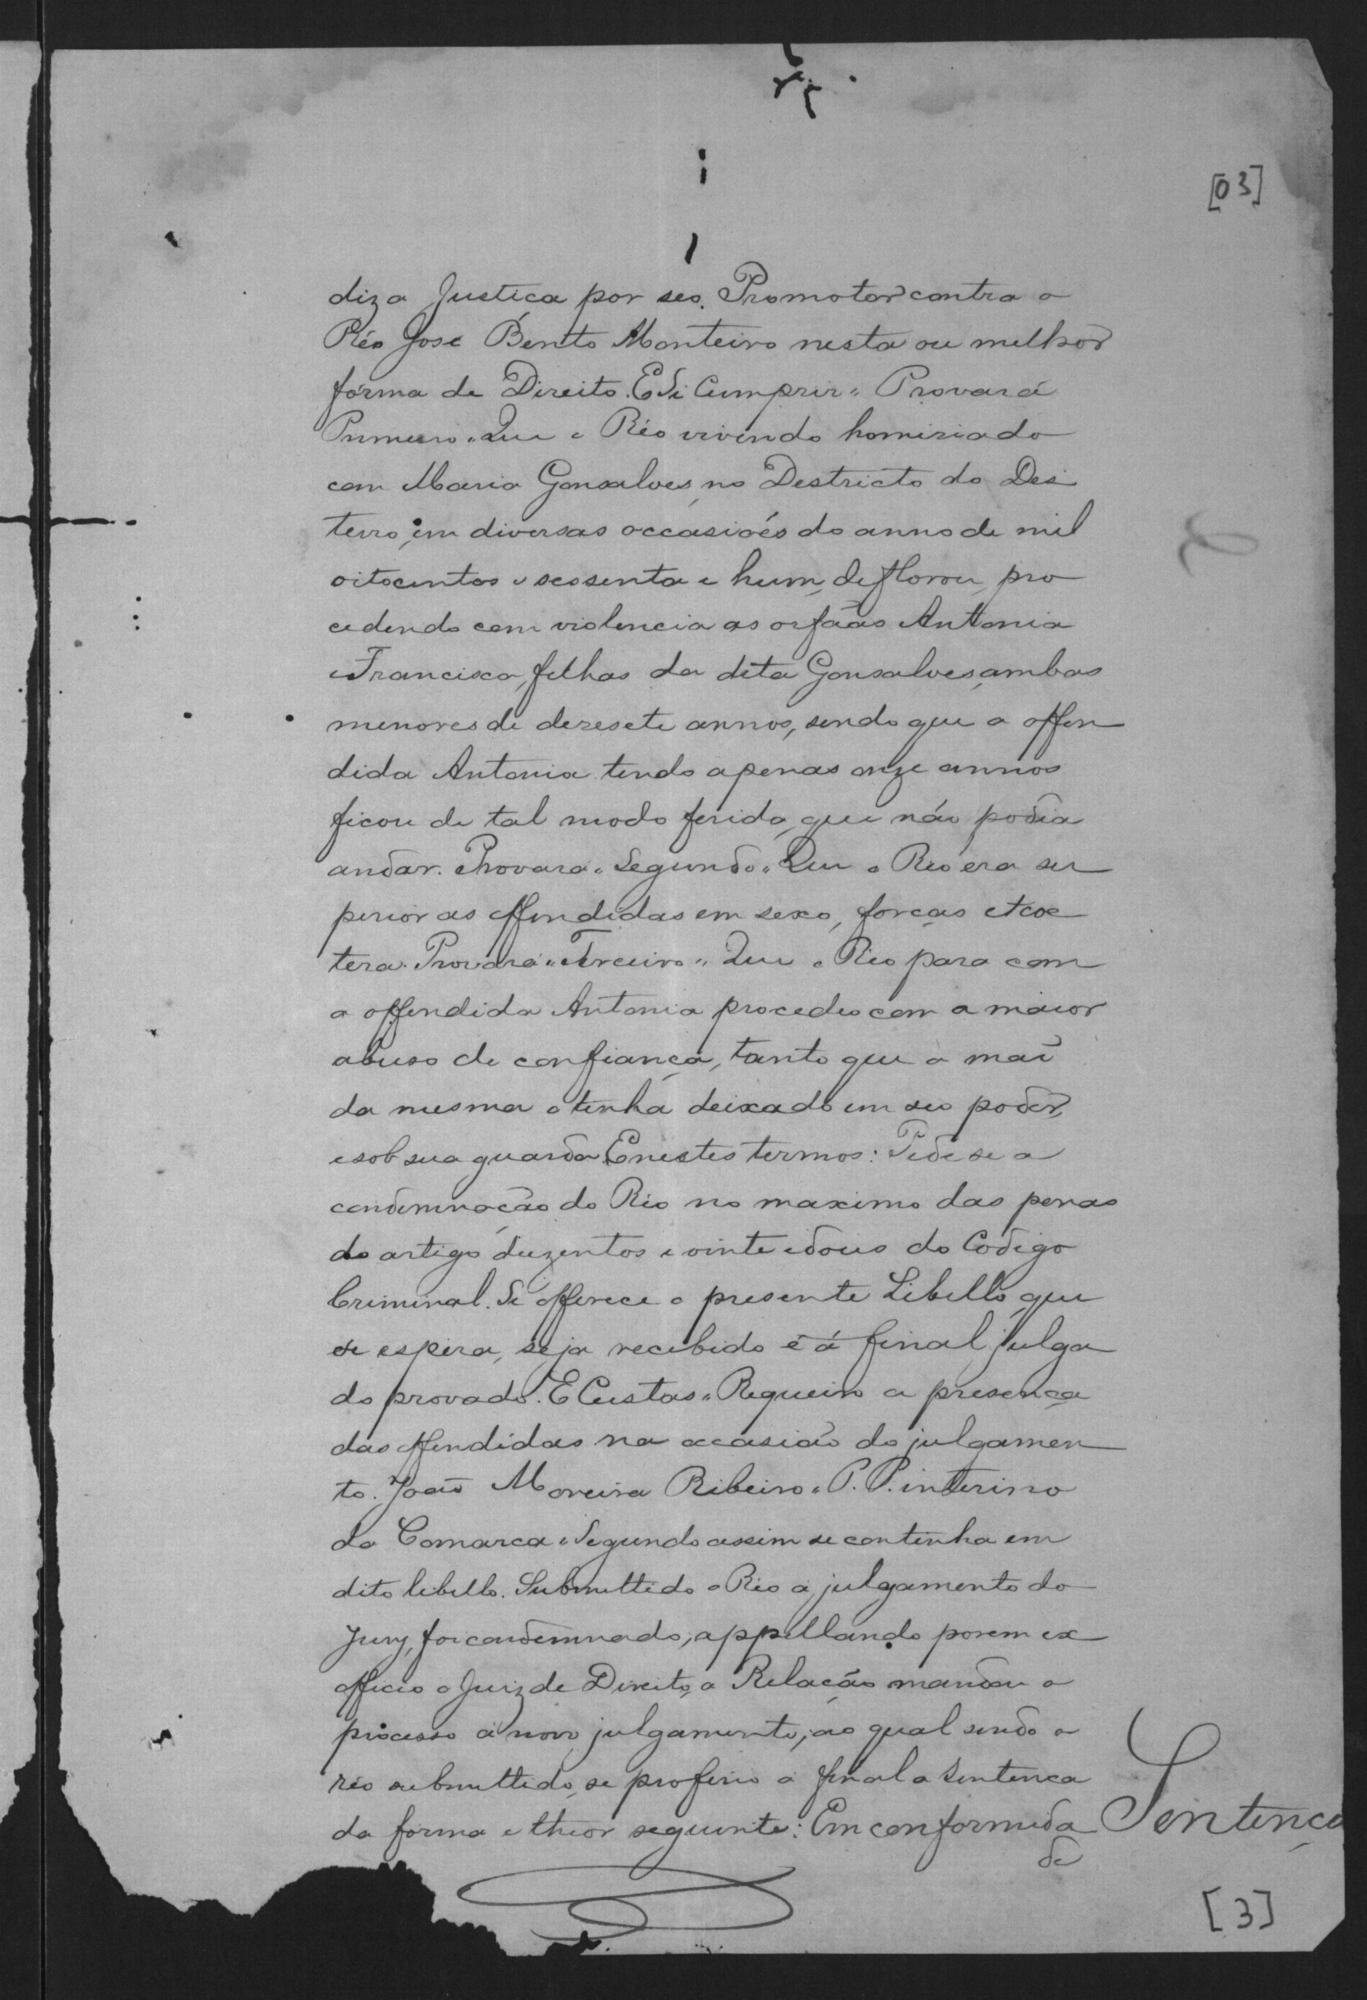 [03]
diz a Justiça por seo Promotor contra o
Réo José Bento Monteiro nesta ou melhor
fórma de Direito. E Si Cumprir " Provará
Primeiro " Que o Réo vivendo homisiado
com Maria Gonsalves, no Destricto do Des
terro, em diversas occasioés do anno de mil
oitocentos e sessenta e hum, deflorou, pro
cedendo com violencia as orfãas Antonia
e Francisca, filhas da dita Gonsalves, ambas
menores de desesete annos, sendo que a offen
dida Antonia tendo apenas onze annos
ficou de tal modo ferida, que não podia
andar. Provará " Segundo " Que o Réo era su
perior as offendidas em sexo, forças etcoe
tera. Provará " Terceiro " Que o Réo para com
a offendida Antonia procedeo com a maior
abuso de confiança, tanto que a maī
da mesma a tinha deixado em seo poder,
e sob sua guarda. E nestes termos: Pede se a
condemnação do Réo no maximo das penas
do artigo duzentos e vinte e dous do Codigo
Criminal. Se offerece o presente Libello, que
se espera, seja recebido e á final julga
do provado. E Custas " Requeiro a presença
das offendidas na occasião do julgamen
to. João Moreira Ribeiro " P. P. interino
da Comarca " Segundo assim se continha em
dito libello. Submettido o Réo a julgamento do
Jury, foi condemnado; appellando porem ex
officio o Juiz de Direito, a Relação mandou o
processo a novo julgamento; ao qual sendo o
réo submettido, se proferio a final a sentença
da forma e theor seguinte: Em conformida
de
Sentença
[3]